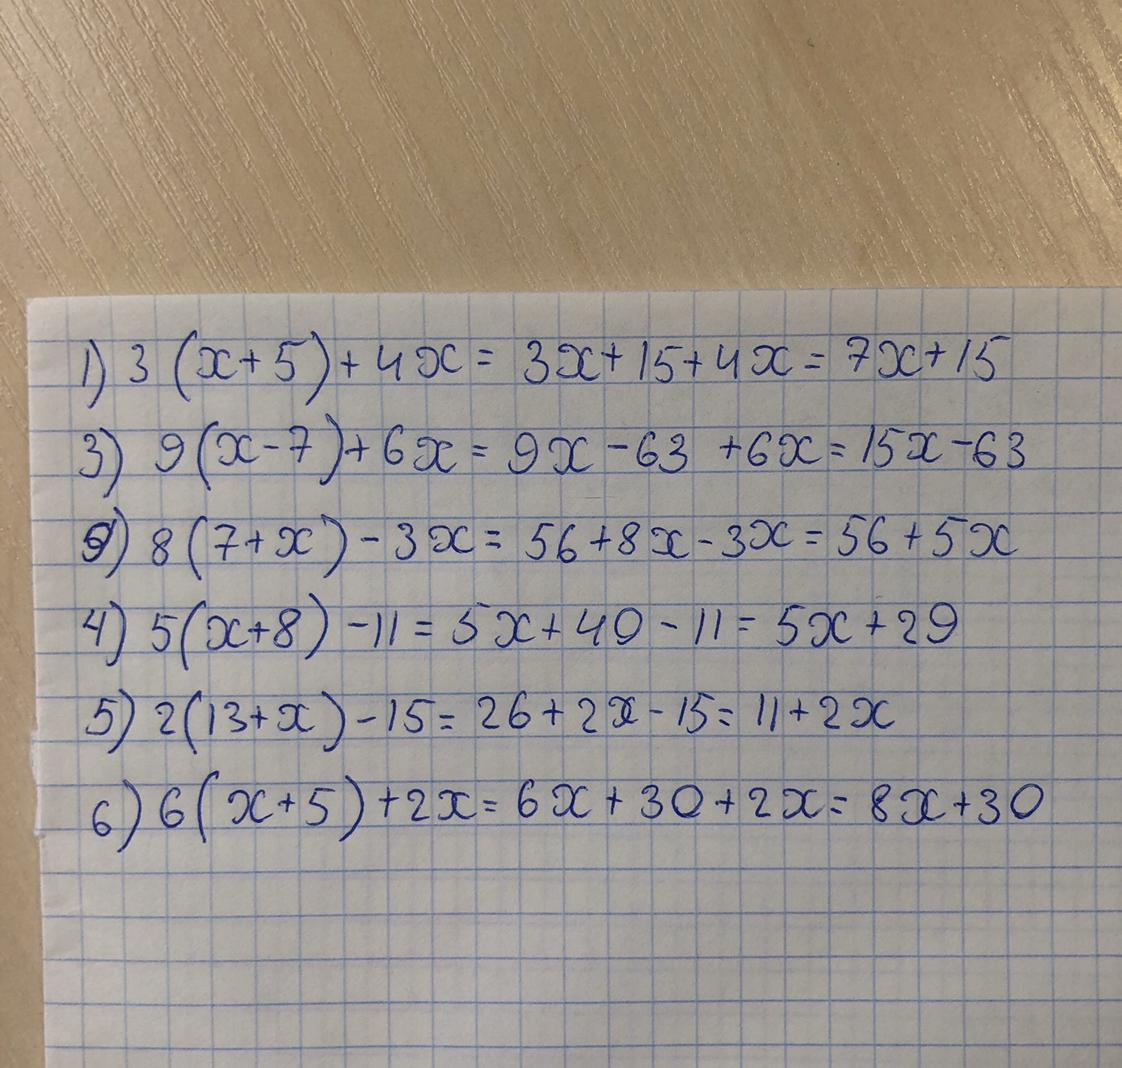 1) 3 (x+5)+4x = 3x+15+4x = 7x+15
3) 9(x-7)+6x = 9x-63 +6x = 15x-63
9) 8(7+x)-3x = 56+8x-3x = 56+5x
4) 5(x+8)-11 = 5x+40-11 = 5x+29
5) 2(13+x)-15 = 26+2x-15 = 11+2x
6) 6(x+5)+2x = 6x+30+2x = 8x+30